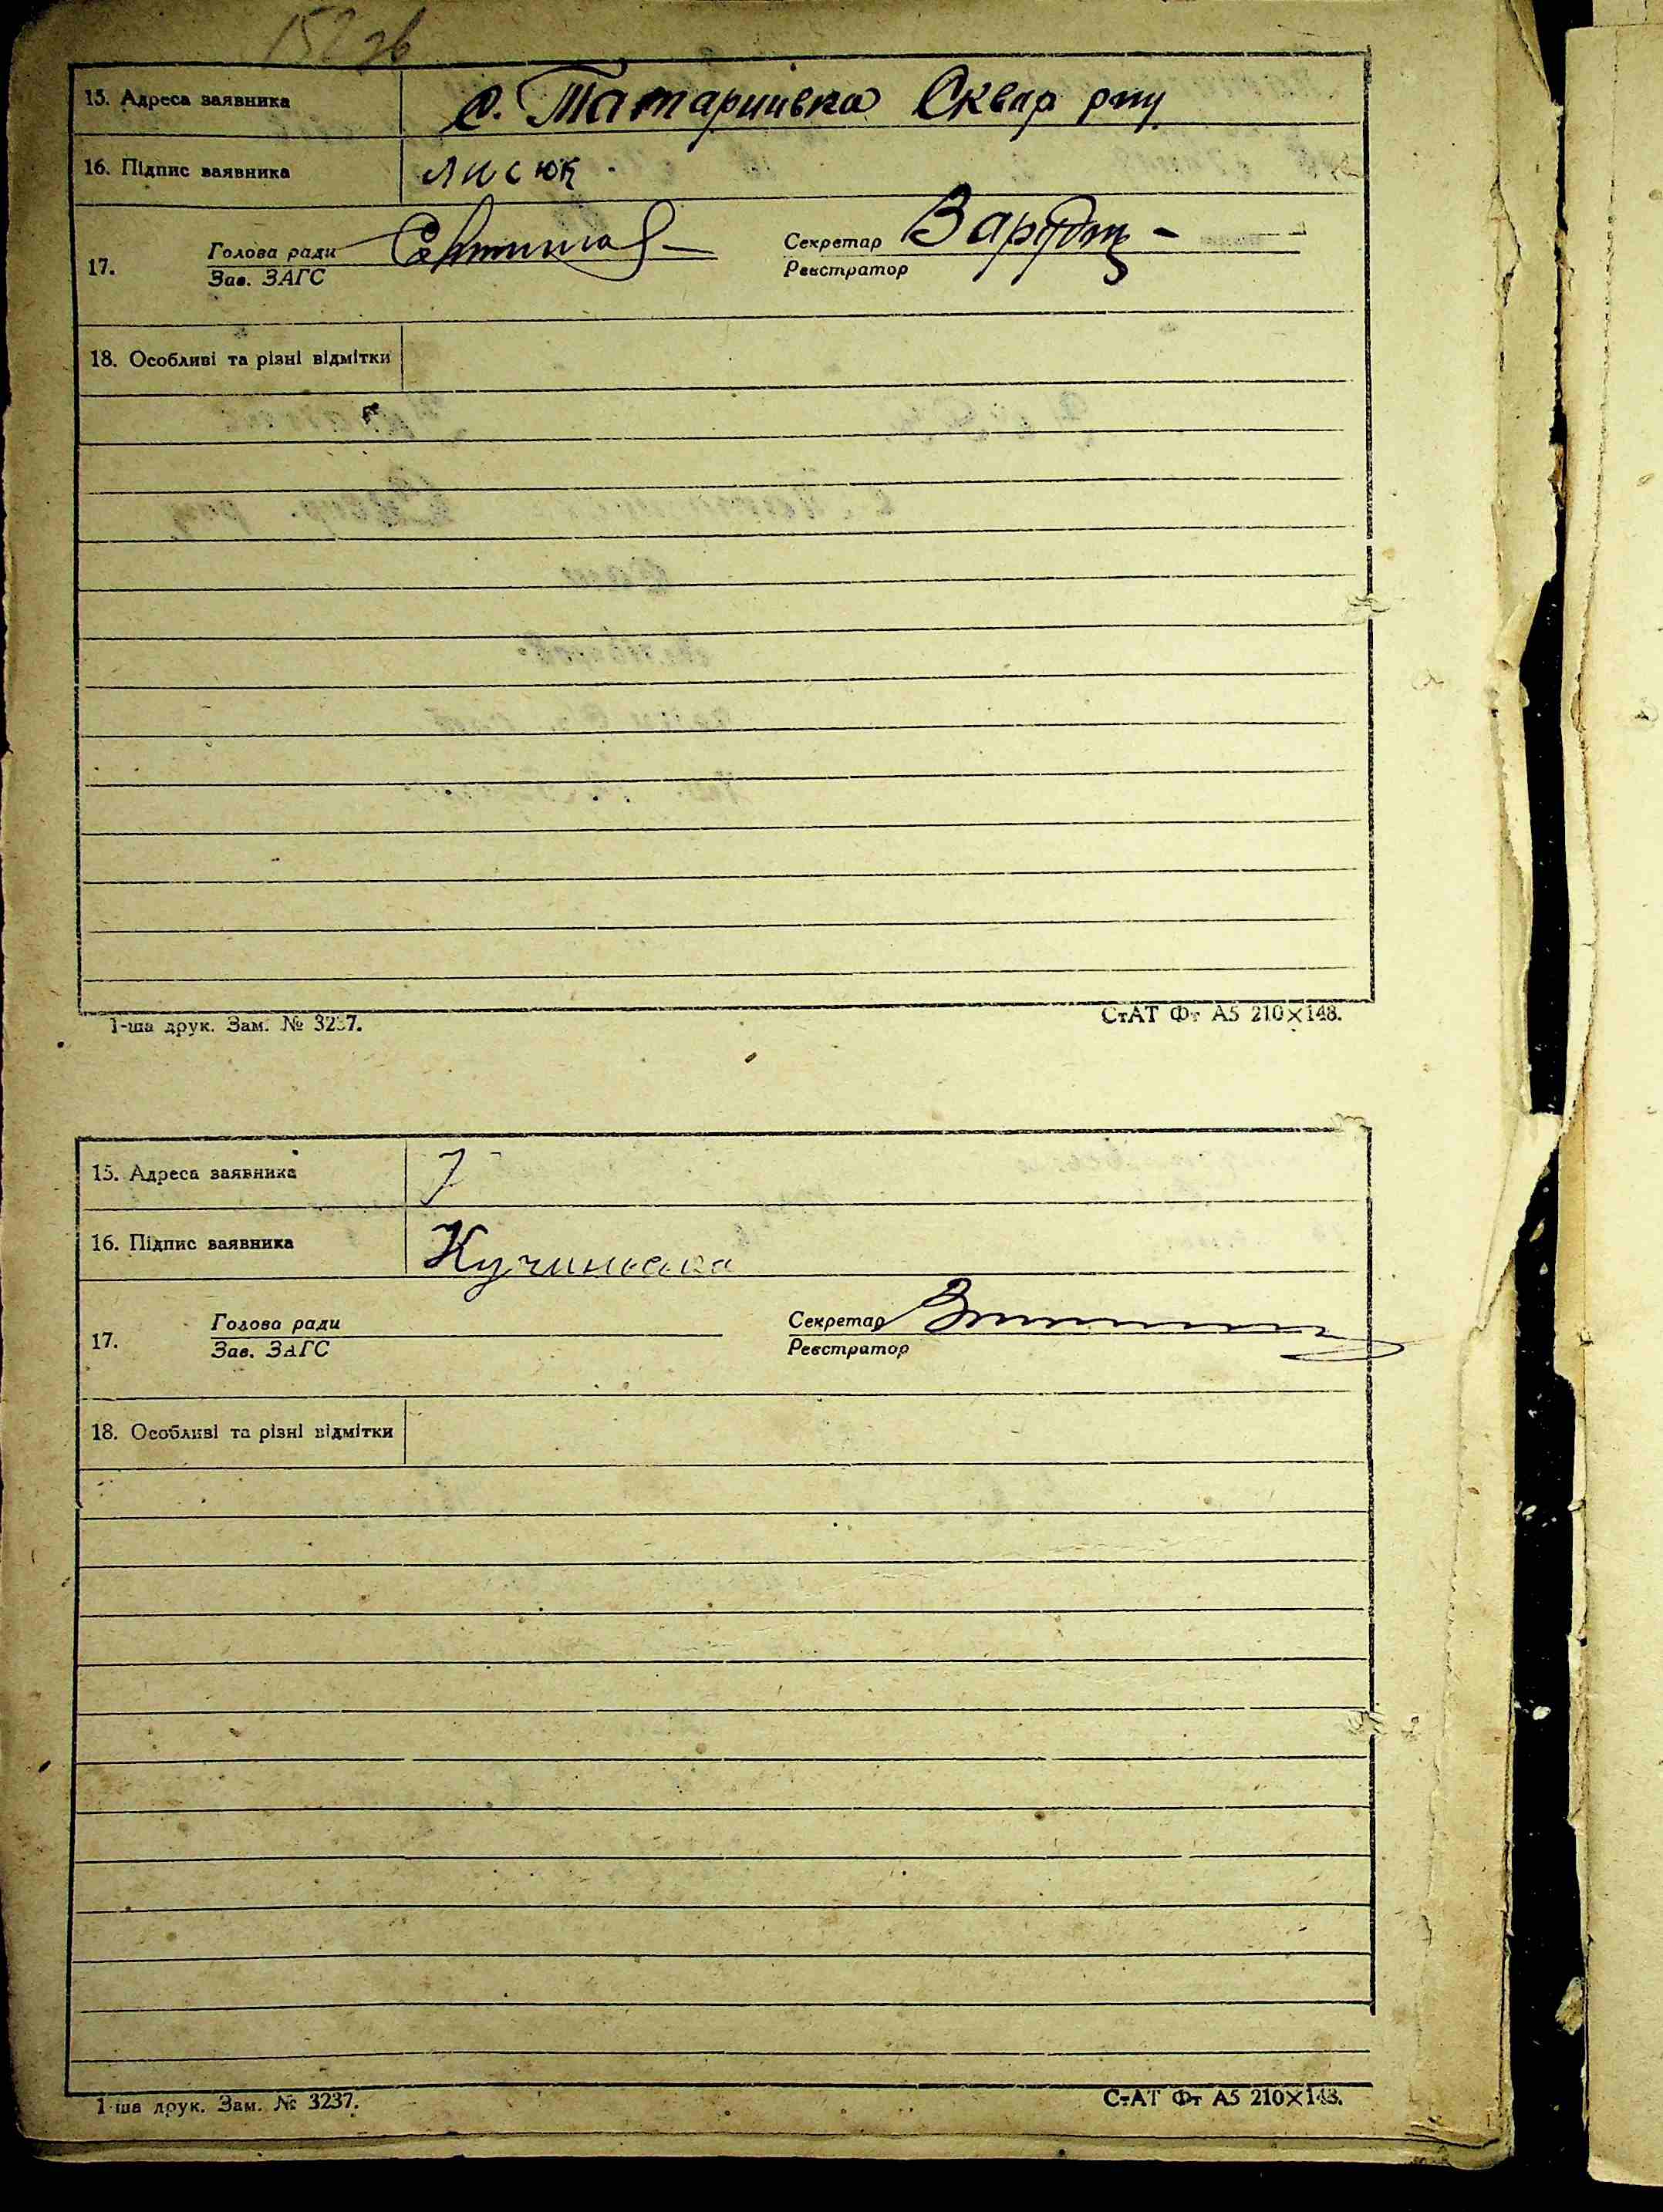 152 зв
15. Адреса заявника с. Татаринівка Сквир р-ну
16. Підпис заявника Лисюк
17. Голова ради Секретар
Зав. ЗАГС Реєстратор
18. Особливі та різні відмітки
1-ша друк. Зам. № 3237. СтАТ Фт А5 210×148.
15. Адреса заявника
16. Підпис заявника Кучинська
17. Голова ради Секретар
Зав. ЗАГС Реєстратор
18. Особливі та різні відмітки
1-ша друк. Зам. № 3237. СтАТ Фт А5 210×148.